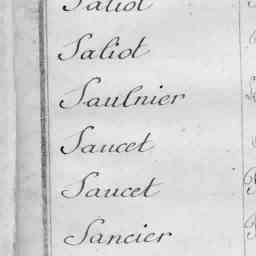 Saliot
Saliot
Saulnier
Saucet
Saucet
Sancier